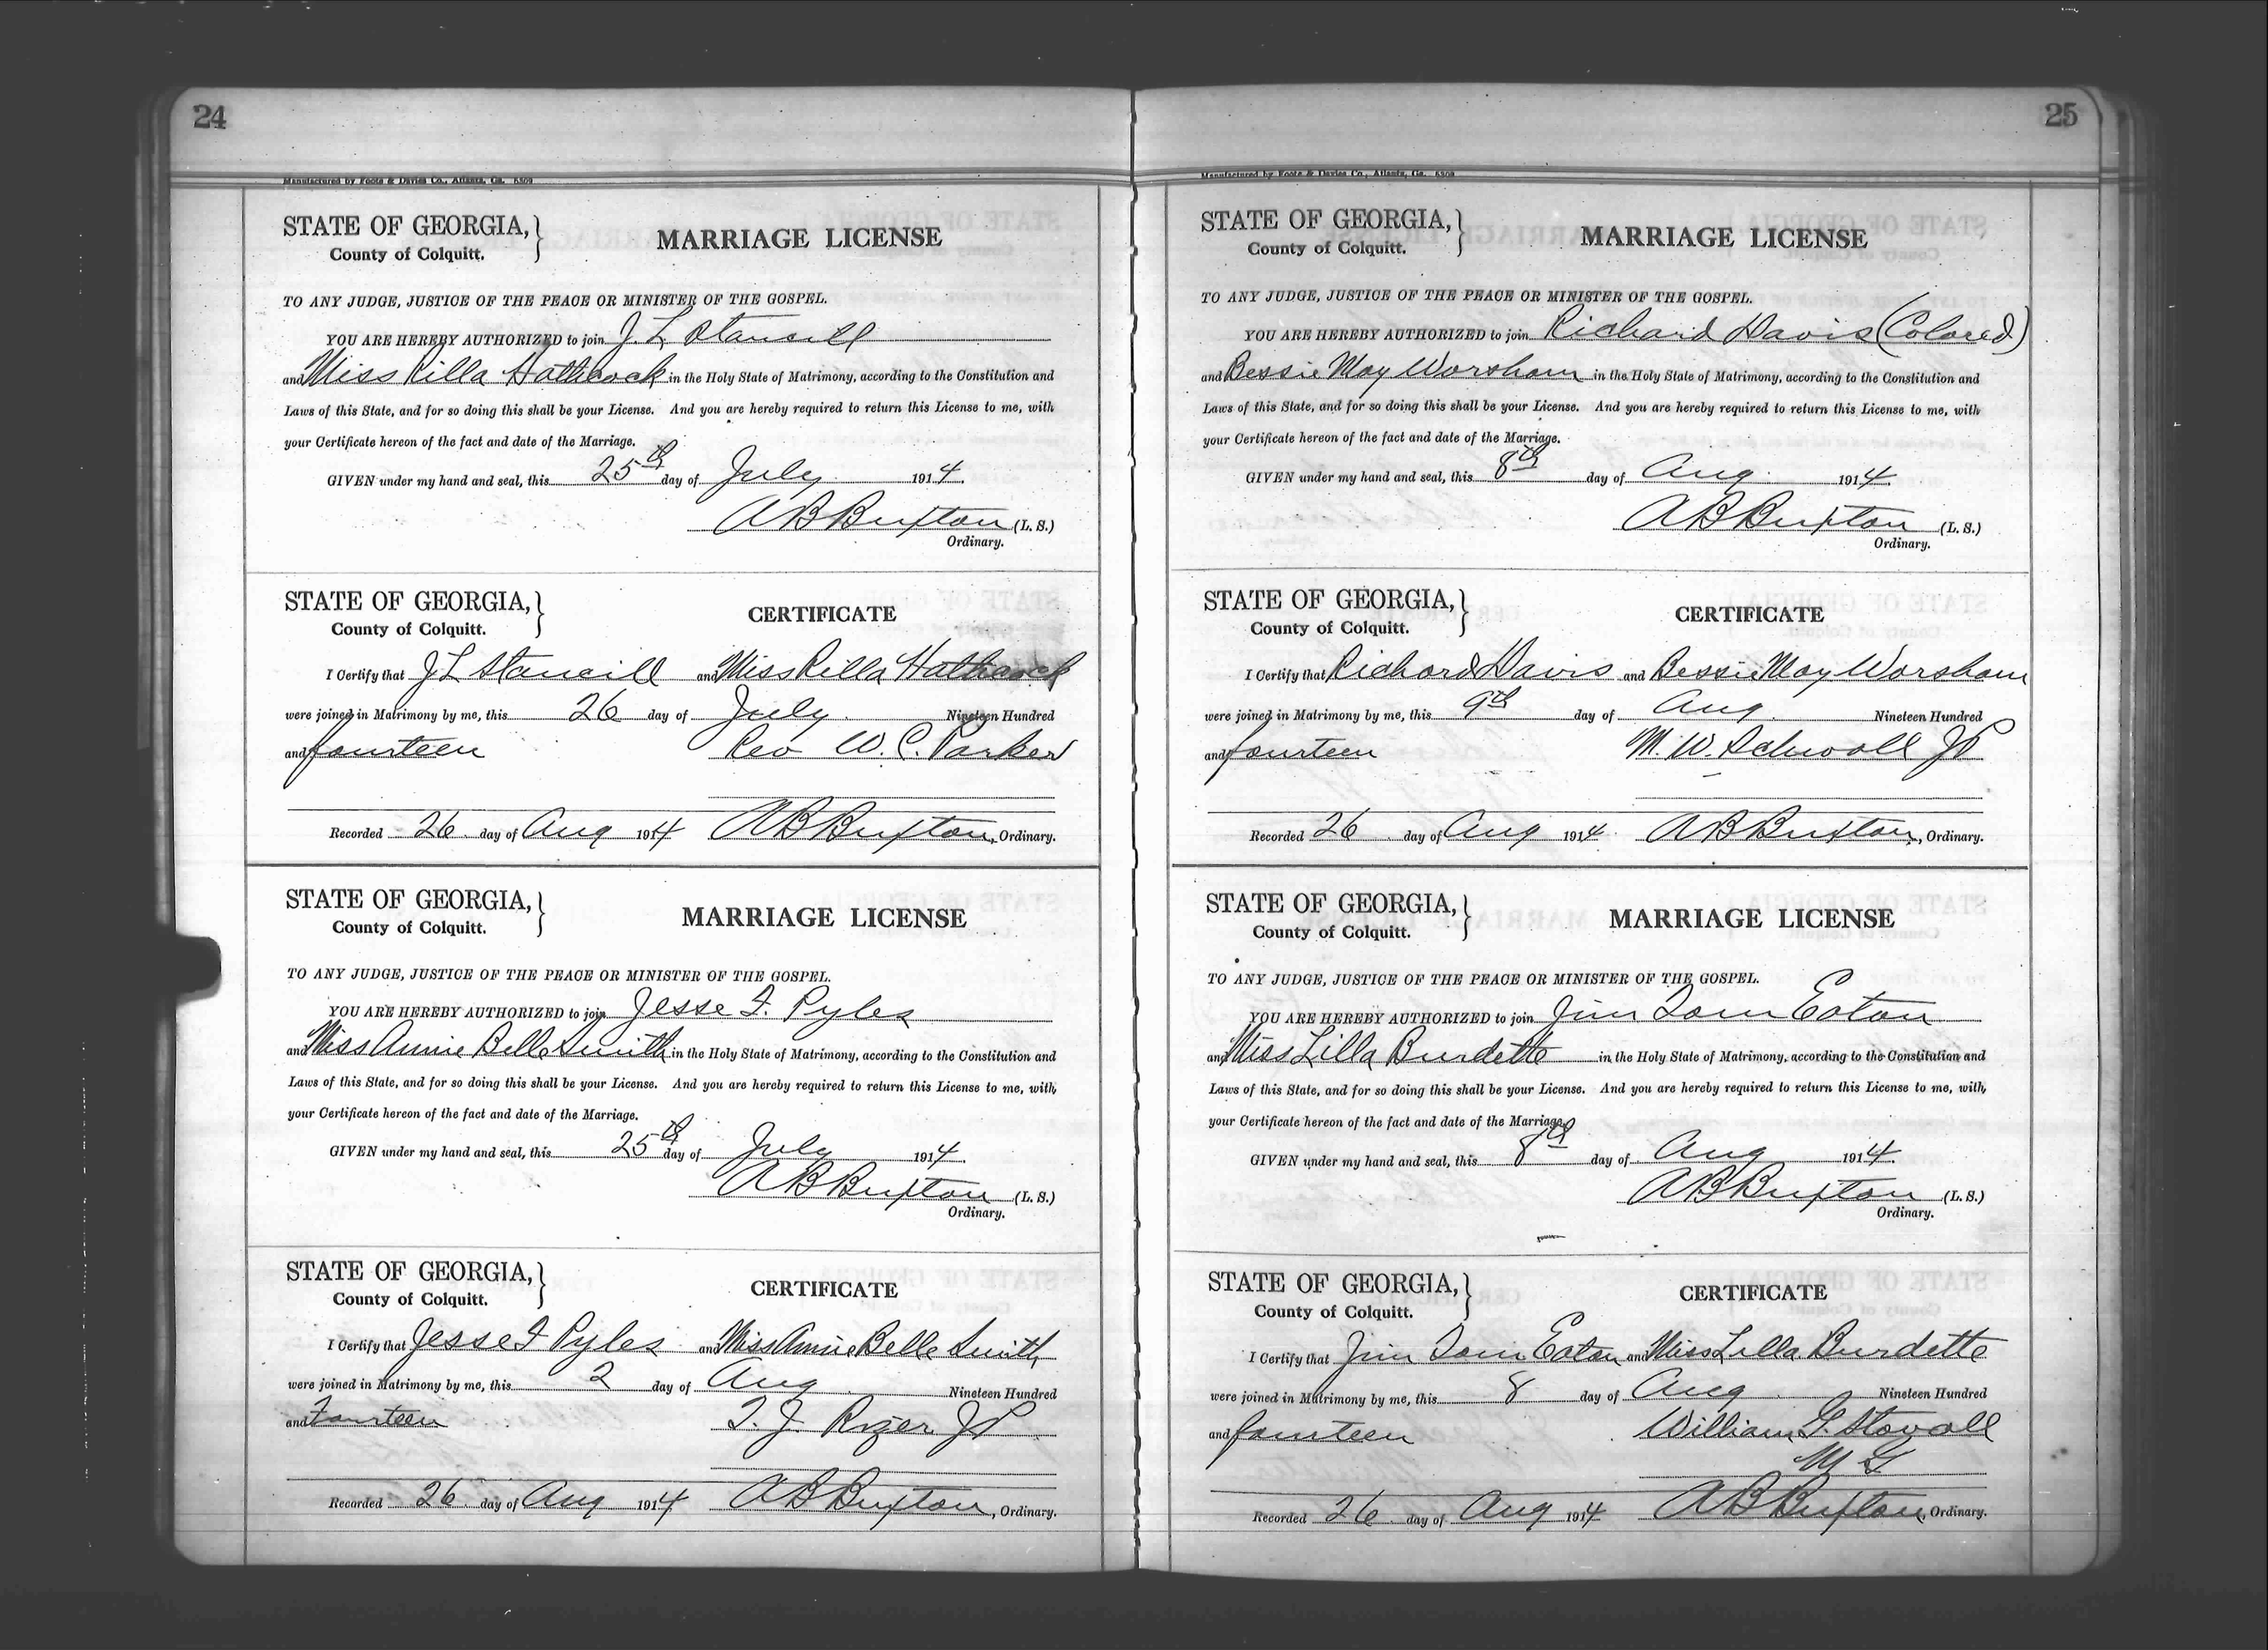 24
Manufactured by Foote & Davies Co., Atlanta, Ga. 5309
STATE OF GEORGIA,
County of Colquitt.
MARRIAGE LICENSE
TO ANY JUDGE, JUSTICE OF THE PEACE OR MINISTER OF THE GOSPEL.
YOU ARE HEREBY AUTHORIZED to join J. L Stancill
and Miss Rilla Hathcock in the Holy State of Matrimony, according to the Constitution and
Laws of this State, and for so doing this shall be your License. And you are hereby required to return this License to me, with
your Certificate hereon of the fact and date of the Marriage.
GIVEN under my hand and seal, this 25th day of July 1914.
A B Buxton (L. S.)
Ordinary.
STATE OF GEORGIA,
County of Colquitt.
CERTIFICATE
I Certify that J L Stancill and Miss Rilla Hathcock
were joined in Matrimony by me, this 26 day of July Nineteen Hundred
and fourteen Rev W. C. Parker
Recorded 26 day of Aug 1914 A B Buxton, Ordinary.
STATE OF GEORGIA,
County of Colquitt.
MARRIAGE LICENSE
TO ANY JUDGE, JUSTICE OF THE PEACE OR MINISTER OF THE GOSPEL.
YOU ARE HEREBY AUTHORIZED to join Jesse F. Pyles
and Miss Annie Belle Smith in the Holy State of Matrimony, according to the Constitution and
Laws of this State, and for so doing this shall be your License. And you are hereby required to return this License to me, with,
your Certificate hereon of the fact and date of the Marriage.
GIVEN under my hand and seal, this 25th day of July 1914.
A B Buxton (L. S.)
Ordinary.
STATE OF GEORGIA,
County of Colquitt.
CERTIFICATE
I Certify that Jesse F Pyles and Miss Annie Belle Smith
were joined in Matrimony by me, this 2 day of Aug Nineteen Hundred
and Fourteen T. J. Rozer JP
Recorded 26 day of Aug 1914 A B Buxton, Ordinary.
25
Manufactured by Foote & Davies Co., Atlanta, Ga. 5309
STATE OF GEORGIA,
County of Colquitt.
MARRIAGE LICENSE
TO ANY JUDGE, JUSTICE OF THE PEACE OR MINISTER OF THE GOSPEL.
YOU ARE HEREBY AUTHORIZED to join Richard Davis (Colored)
and Bessie May Worsham in the Holy State of Matrimony, according to the Constitution and
Laws of this State, and for so doing this shall be your License. And you are hereby required to return this License to me, with
your Certificate hereon of the fact and date of the Marriage.
GIVEN under my hand and seal, this 8th day of Aug 1914.
A B Buxton (L. S.)
Ordinary.
STATE OF GEORGIA,
County of Colquitt.
CERTIFICATE
I Certify that Richard Davis and Bessie May Worsham
were joined in Matrimony by me, this 9th day of Aug Nineteen Hundred
and fourteen M. W. JP
Recorded 26 day of Aug 1914 A B Buxton, Ordinary.
STATE OF GEORGIA,
County of Colquitt.
MARRIAGE LICENSE
TO ANY JUDGE, JUSTICE OF THE PEACE OR MINISTER OF THE GOSPEL.
YOU ARE HEREBY AUTHORIZED to join Jim Tom Eaton
and Miss Lilla Burdette in the Holy State of Matrimony, according to the Constitution and
Laws of this State, and for so doing this shall be your License. And you are hereby required to return this License to me, with,
your Certificate hereon of the fact and date of the Marriage.
GIVEN under my hand and seal, this 8th day of Aug 1914.
A B Buxton (L. S.)
Ordinary.
STATE OF GEORGIA,
County of Colquitt.
CERTIFICATE
I Certify that Jim Tom Eaton and Miss Lilla Burdette
were joined in Matrimony by me, this 8 day of Aug Nineteen Hundred
and fourteen William G. Stovall
M G
Recorded 26 day of Aug 1914 A B Buxton, Ordinary.